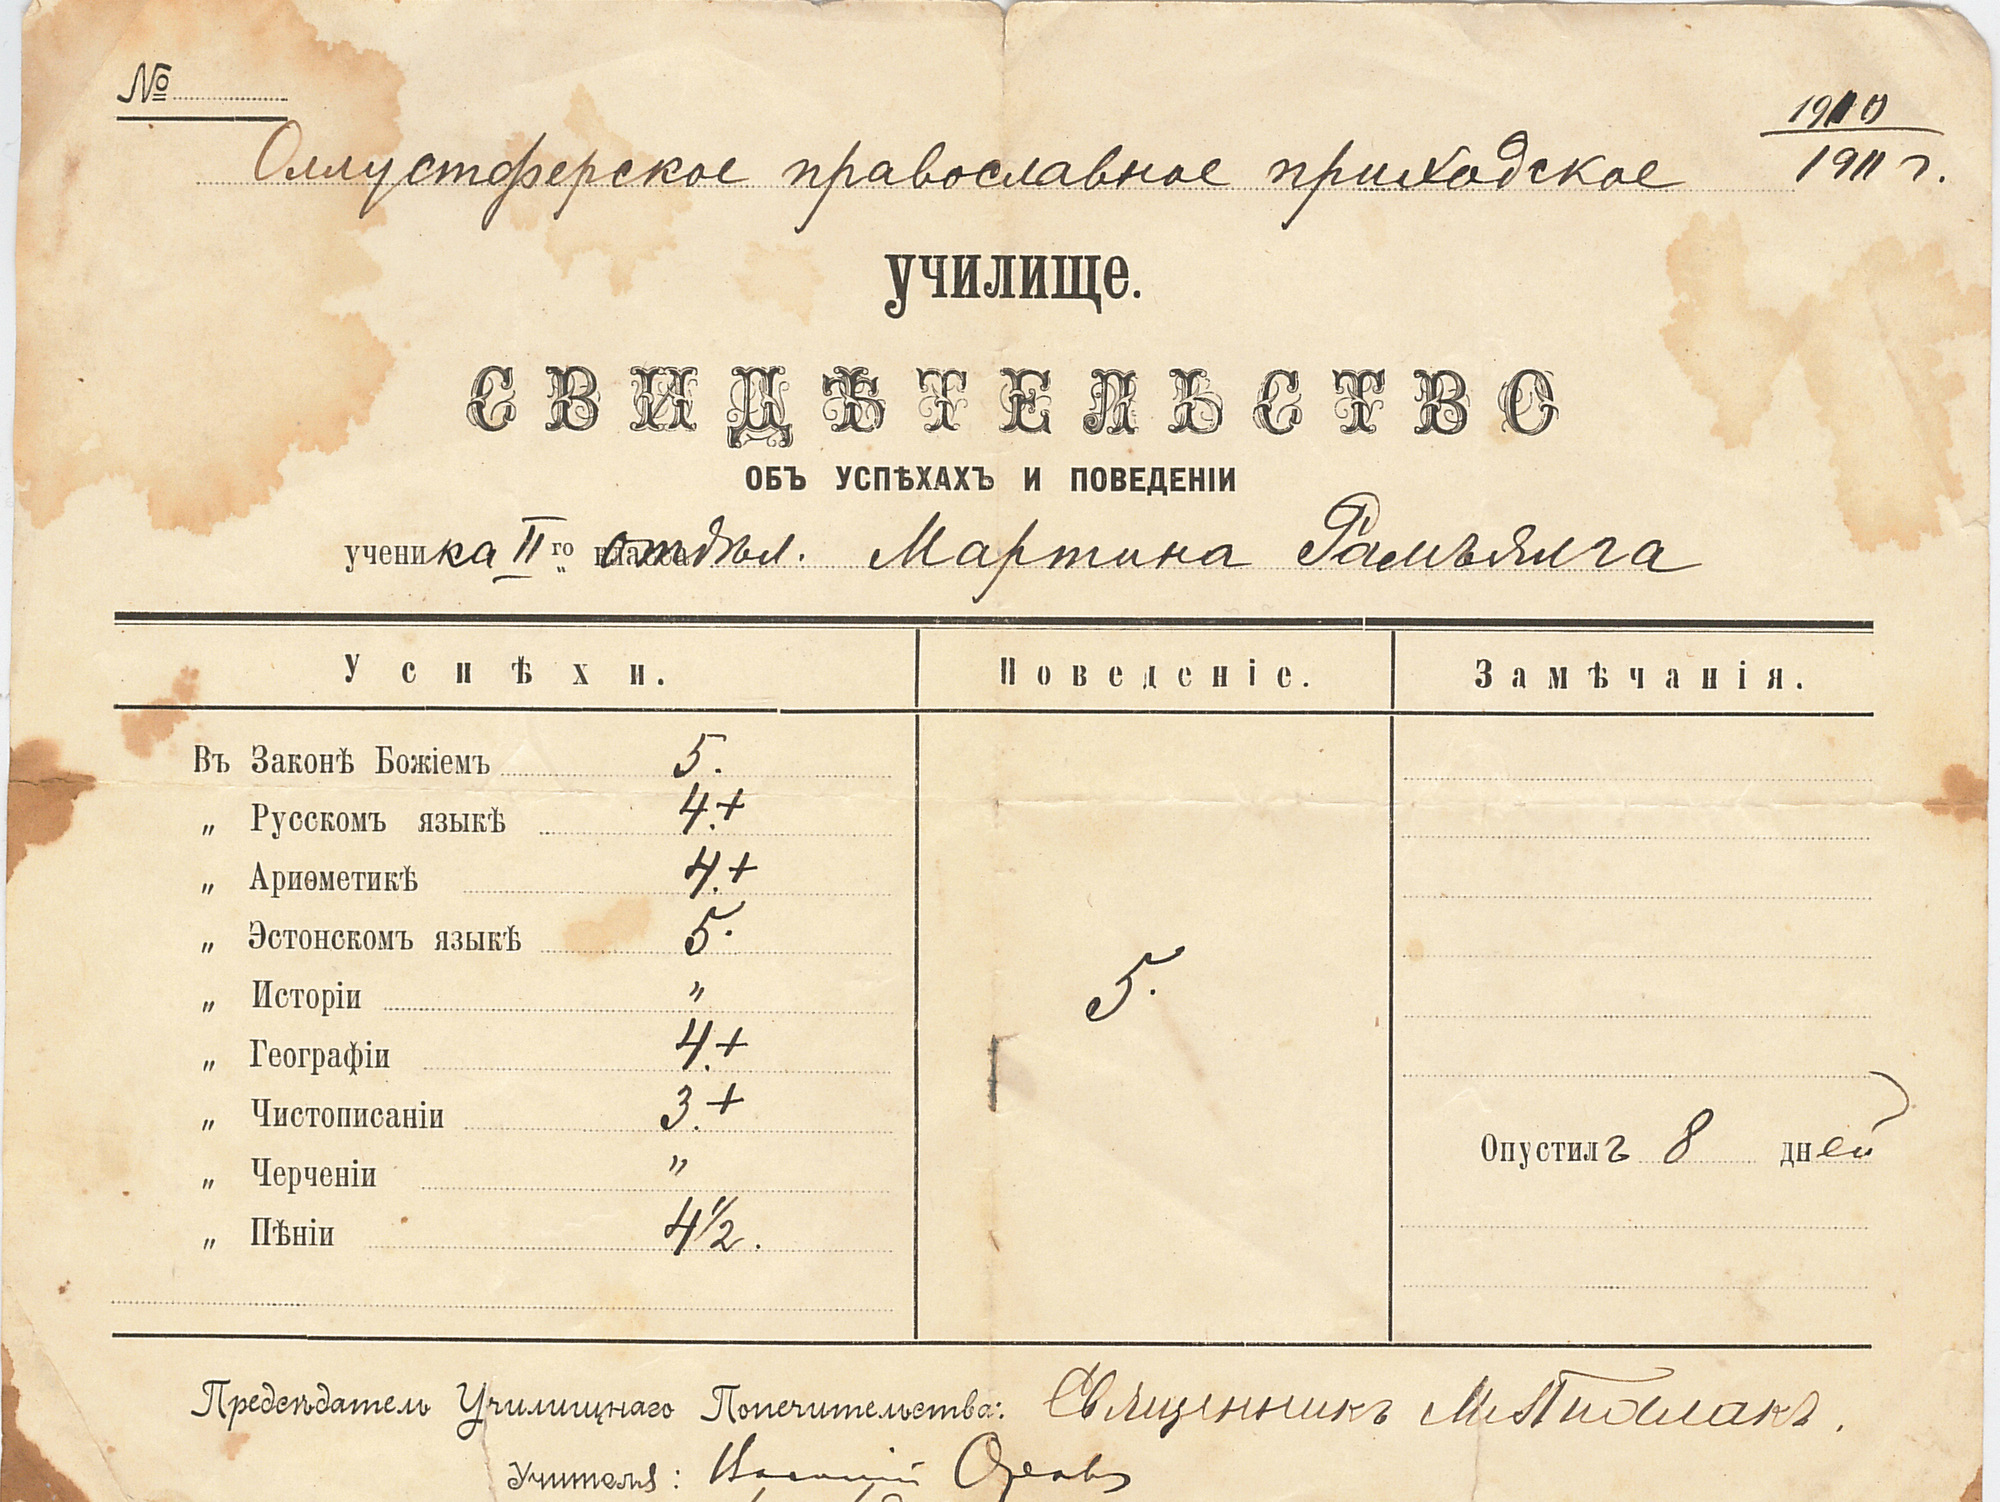 №
1910
1911 г.
Оллустферское православное приходское
училище.
СВИДѢТЕЛЬСТВО
ОБЪ УСПѢХАХЪ И ПОВЕДЕНІИ
ученика II го отдѣл. Мартина Рамъялга
Успѣхи. Поведеніе. Замѣчанія.
Въ Законѣ Божіемъ 5.
„ Русскомъ языкѣ 4.+
„ Ариѳметикѣ 4.+
„ Эстонскомъ языкѣ 5.
„ Исторіи „
5.
„ Географіи 4.+
„ Чистописаніи 3.+
Опустилъ 8 дней
„ Черченіи „
„ Пѣніи 4 1/2.
Предсѣдатель Училищнаго Попечительства: Священникъ М.
Учителя: